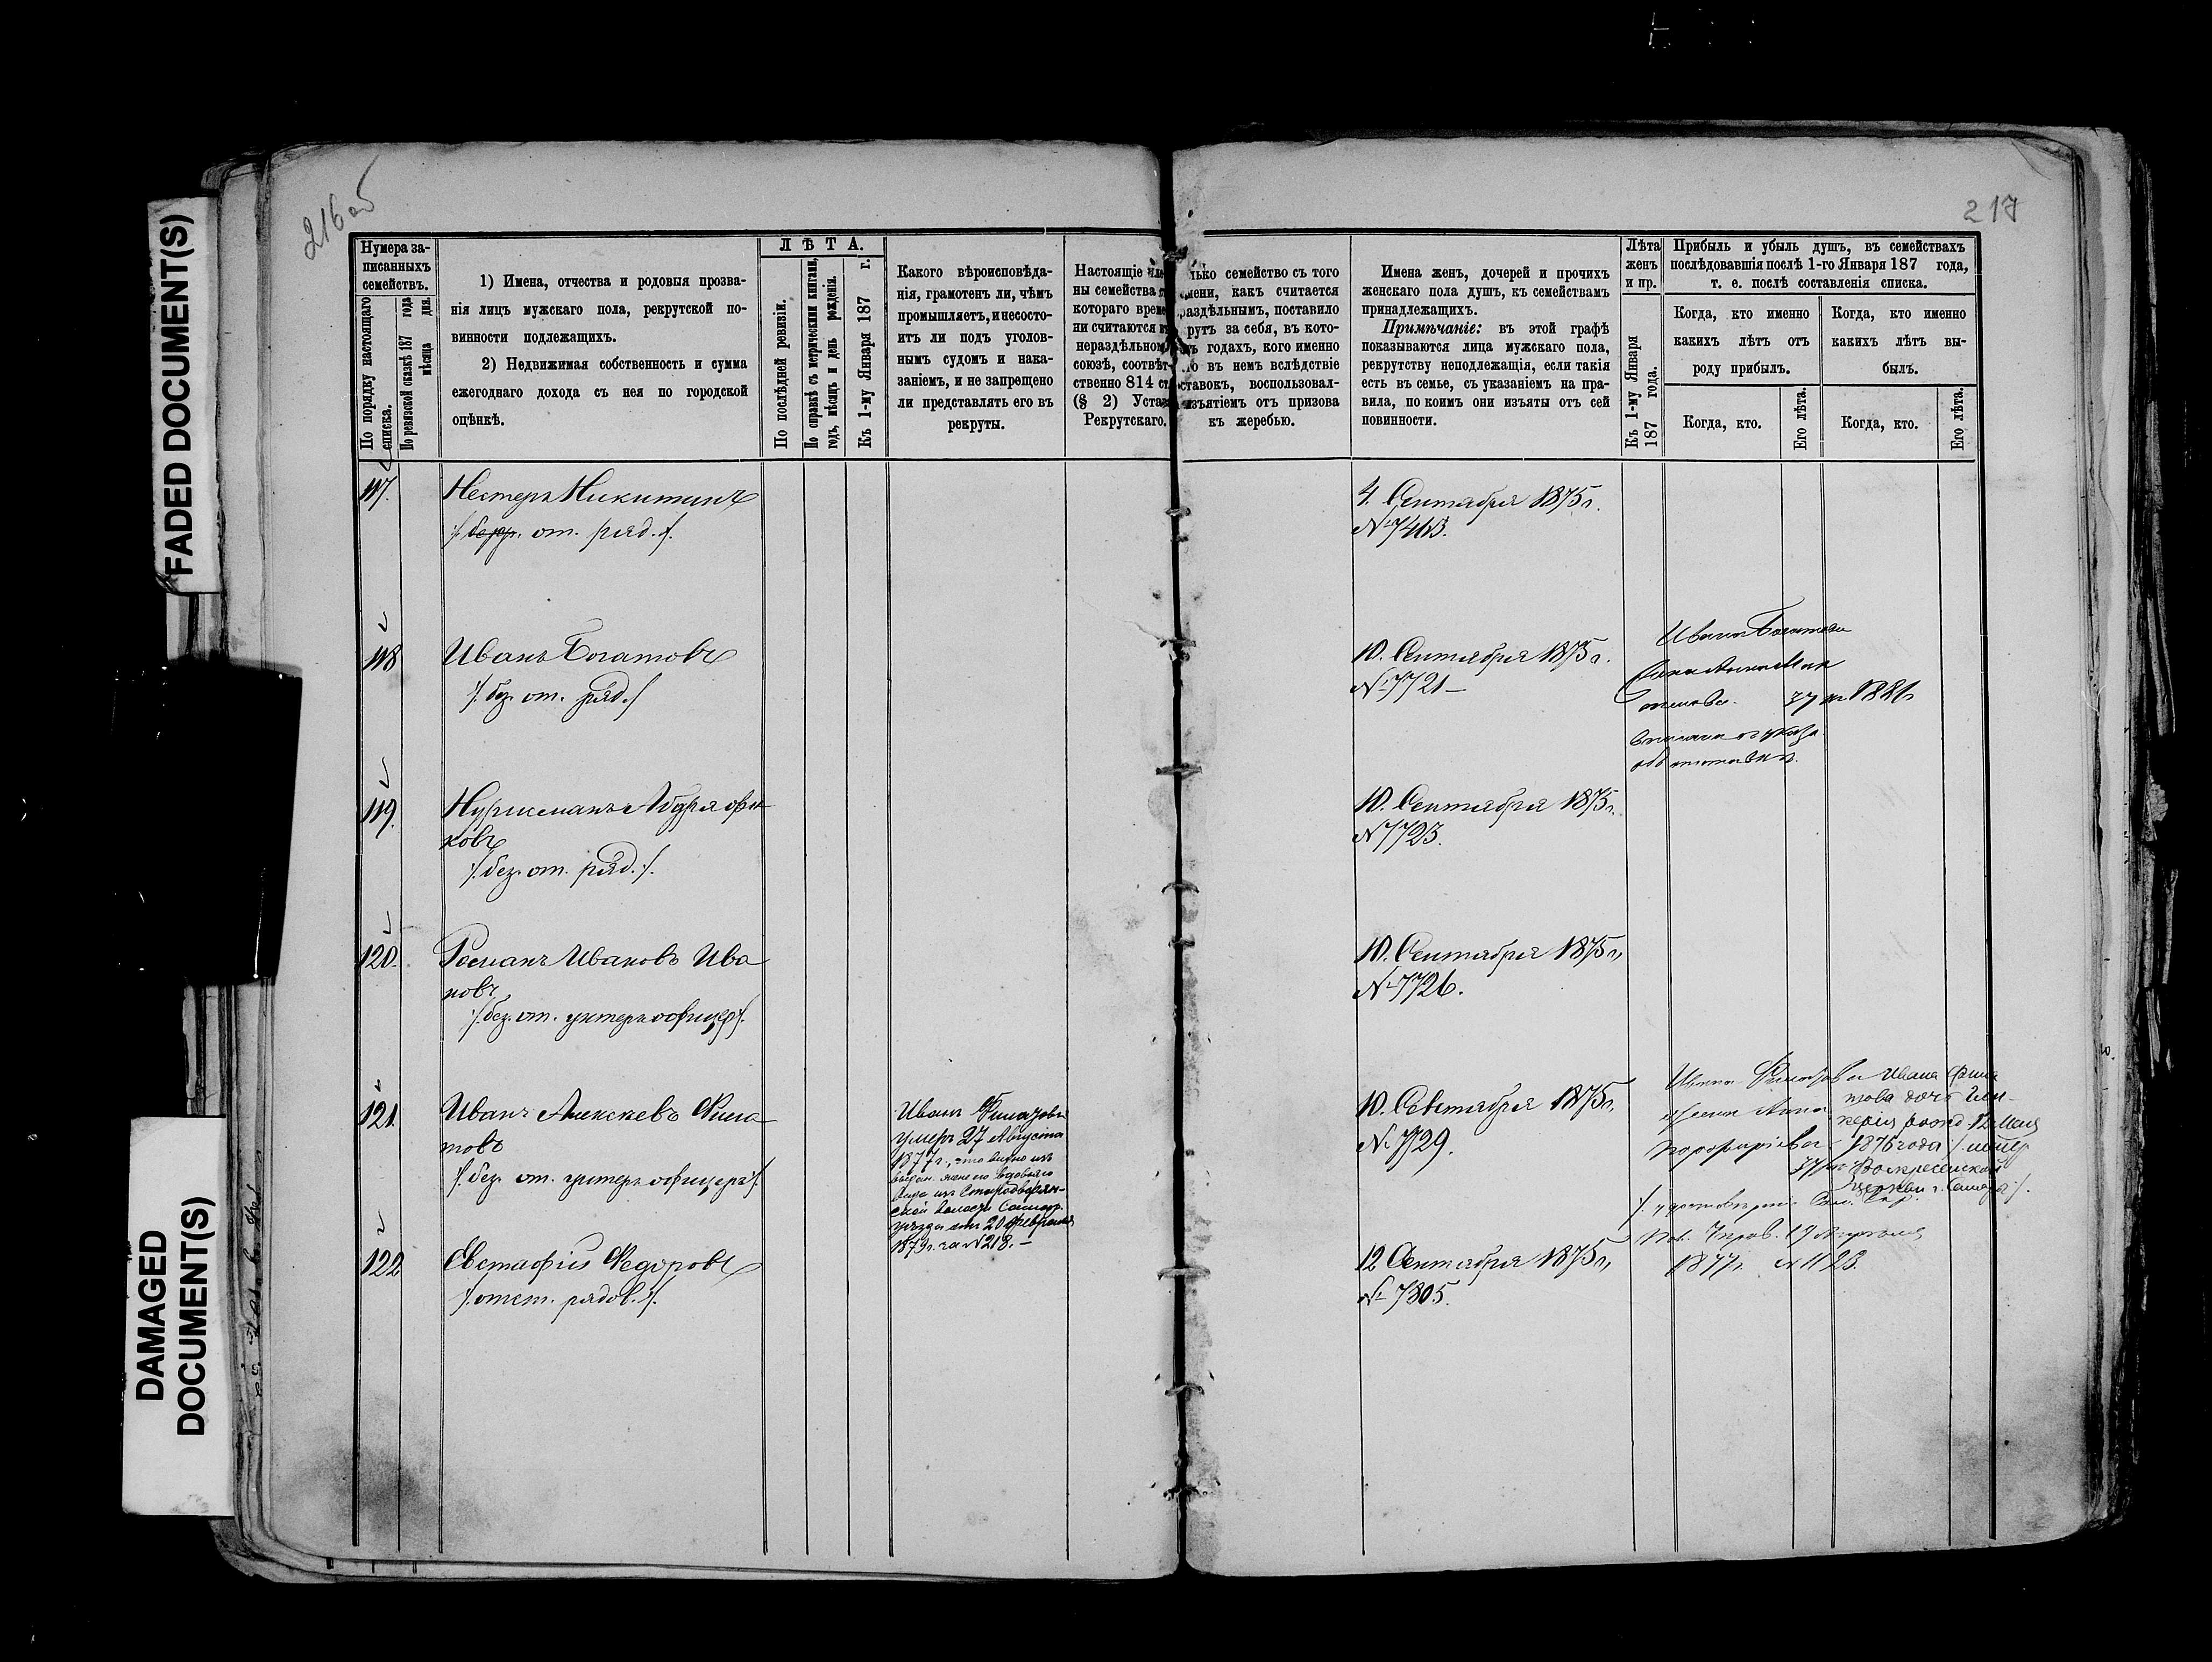 FADED DOCUMENT(S)
DAMAGED
DOCUMENT(S)
216 об
217
Нумера за-
писанныхъ
семействъ.
По порядку настоящаго
списка.
По ревизской сказкѣ 187 года
мѣсяца дня.
1) Имена, отчества и родовыя прозва-
нія лицъ мужскаго пола, рекрутской по-
винности подлежащихъ.
2) Недвижимая собственность и сумма
ежегоднаго дохода съ нея по городской
оцѣнкѣ.
ЛѢТА.
По послѣдней ревизіи.
По справкѣ съ метрическими книгами,
годъ, мѣсяцъ и день рожденія.
Къ 1-му Января 187 г.
Какого вѣроисповѣда-
нія, грамотенъ ли, чѣмъ
промышляетъ, и несосто-
итъ ли подъ уголов-
нымъ судомъ и нака-
заніемъ, и не запрещено
ли представлять его въ
рекруты.
Настоящіе чле
ны семейства
котораго време
ни считаются
нераздѣльном
союзѣ, соотвѣт-
ственно 814 ст.
(§ 2) Устава
Рекрутскаго.
лько семейство съ того
мени, какъ считается
раздѣльнымъ, поставило
рутъ за себя, въ кото-
годахъ, кого именно
въ немъ вслѣдствіе
ставокъ, воспользовал-
изъятіемъ отъ призова
къ жеребью.
Имена женъ, дочерей и прочихъ
женскаго пола душъ, къ семействамъ
принадлежащихъ.
Примѣчаніе: въ этой графѣ
показываются лица мужскаго пола,
рекрутству неподлежащія, если такія
есть въ семье, съ указаніемъ на пра-
вила, по коимъ они изъяты отъ сей
повинности.
Лѣта
женъ
и пр.
Къ 1-му Января
187 года.
Прибыль и убыль душъ, въ семействахъ
послѣдовавшія послѣ 1-го Января 187 года,
т. е. послѣ составленія списка.
Когда, кто именно
какихъ лѣтъ отъ
роду прибылъ.
Когда, кто.
Его лѣта.
Когда, кто именно
какихъ лѣтъ вы-
былъ.
Когда, кто.
Его лѣта.
117. Нестеръ Никитинъ
от. ряд.
4. Сентября 1875 г.
№ 7463.
118 Иванъ Богатовъ
/. без. от. ряд ./
10. Сентября 1875 г.
№ 7721
Ивана Богатова
жена Анна
37 1881
119. Абдряфи-
ковъ
/. без. от. ряд. ./
10. Сентября 1875 г.
№ 7723.
120. Романъ Ивановъ Ива
новъ
/. без. от. унтеръ офицеръ ./
10. Сентября 1875 г,
№ 7726.
121. Иванъ Алексѣевъ Фила
товъ
/. без. от. унтеръ офицеръ ./
Иванъ
умеръ 27 Августа
1877 г., это видно изъ
годоваго
вида изъ Стародворян-
ской волости Самар.
уѣзда отъ 20 Февраля
1879 г. за № 218. —
10. Сентября 1875 г,
№ 7729.
Ивана
жена Анна
Порофирьева
37
Ивана Фила
това дочь
рожд. 12 Мая
1876 года
Воскресенской
церкви г. Самара ./
19 Августа
1877 г. № 1123.
122 Евстафій Федоровъ
/. отст. рядов. ./
12 Сентября 1875 г,
№ 7805.